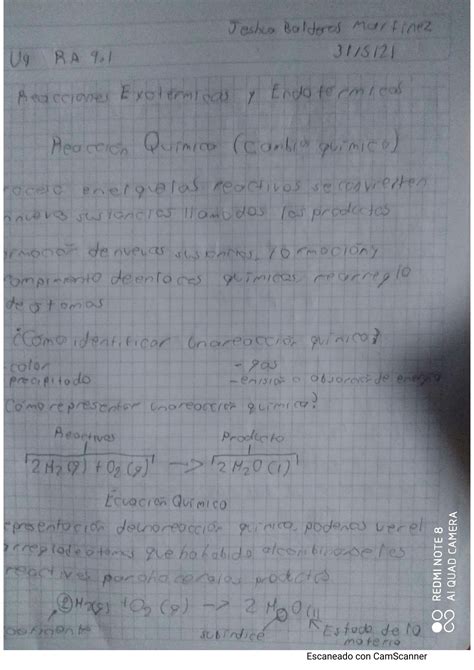 Joshua Balderas Martinez
U4 RA 4.1 31/5/21
Reacciones Exotermicas y Endotermicas
Reacción Química (cambio químico)
roceso en el que los reactivos se convierten
nuevas sustancias llamadas los productos
rmación de nuevas sustancias, formación y
rompimiento de enlaces químicos, rearreglo
de atomos
¿Cómo identificar una reacción química?
color - gas
precipitado - emisión o absorción de energia
Cómo representar una reacción química?
Reactivos Producto
2H2(g) + O2(g) -> 2H2O(l)
Ecuación Química
epresentación de una reacción química, podemos ver el
arreglo de atomos que ha habido al combinarse los
reactivos para formar los productos
2H2(g) + O2(g) -> 2H2O(l)
subíndice Estado de la
materia
REDMI NOTE 8
AI QUAD CAMERA
Escaneado con CamScanner